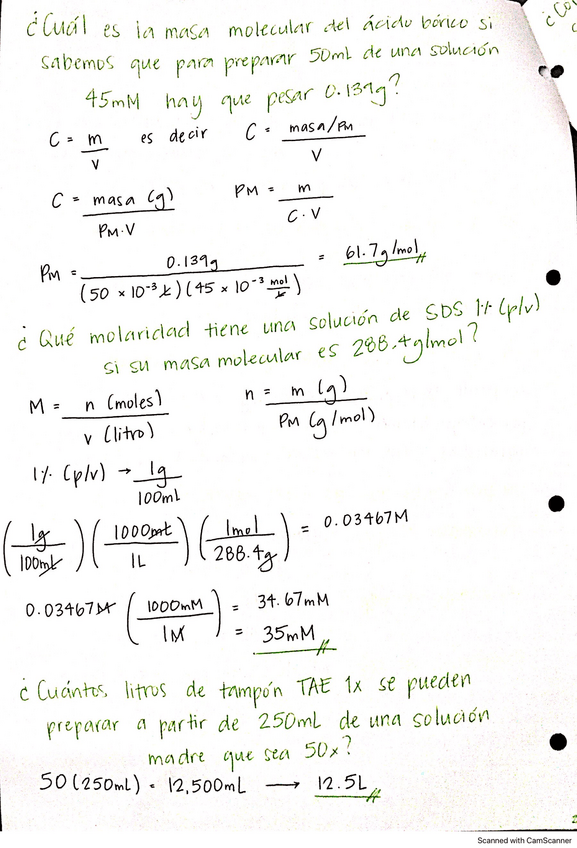 ¿Cuál es la masa molecular del ácido bórico si
sabemos que para preparar 50mL de una solución
45mM hay que pesar 0.139g?
C = m / V es decir C = masa/PM / V
C = masa (g) / PM·V PM = m / C·V
PM = 0.139g / (50 × 10⁻³ L)(45 × 10⁻³ mol/L) = 61.7g/mol
¿Qué molaridad tiene una solución de SDS 1% (p/v)
si su masa molecular es 288.4g/mol?
M = n (moles) / v (litro) n = m (g) / PM (g/mol)
1% (p/v) → 1g / 100mL
(1g / 100mL) (1000mL / 1L) (1mol / 288.4g) = 0.03467M
0.03467M (1000mM / 1M) = 34.67mM
= 35mM
¿Cuántos litros de tampón TAE 1x se pueden
preparar a partir de 250mL de una solución
madre que sea 50x?
50(250mL) = 12,500mL → 12.5L
Scanned with CamScanner